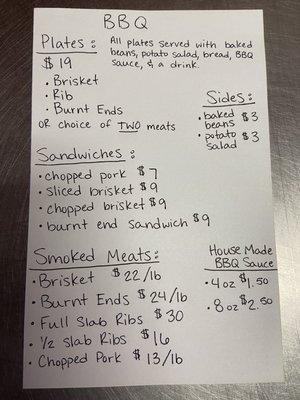 BBQ
Plates:
All plates served with baked
beans, potato salad, bread, BBQ
sauce, & a drink.
$19
• Brisket
• Rib
• Burnt Ends
OR choice of TWO meats
Sides:
• baked beans $3
• potato salad $3
Sandwiches:
• chopped pork $7
• sliced brisket $9
• chopped brisket $9
• burnt end sandwich $9
Smoked Meats:
• Brisket $22/lb
• Burnt Ends $24/lb
• Full Slab Ribs $30
• 1/2 Slab Ribs $16
• Chopped Pork $13/lb
House Made
BBQ Sauce
• 4 oz $1.50
• 8 oz $2.50